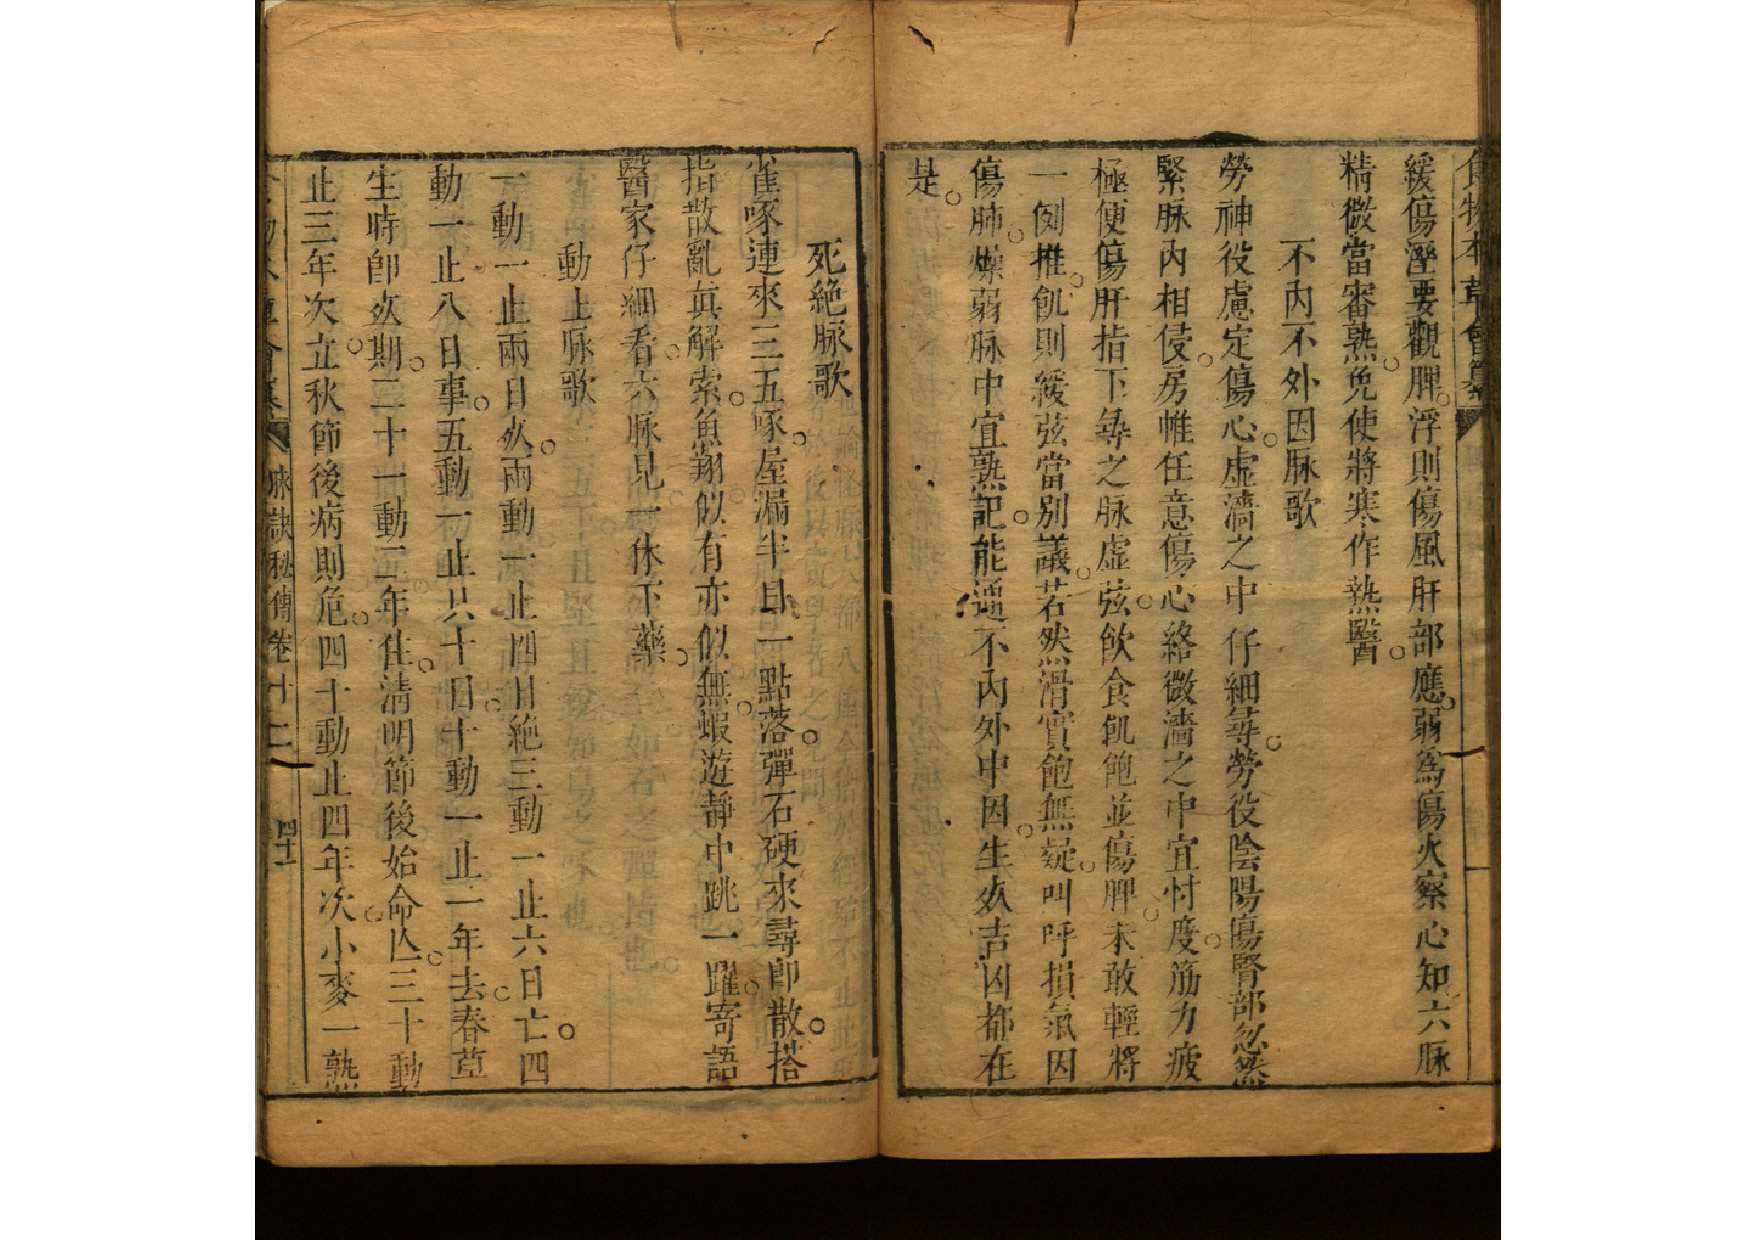 食物本草會纂
緩傷溼要觀脾浮則傷風肝部應弱爲傷火察心知六脈
精微當審熟免使將寒作熱醫
不內不外因脈歌
勞神役慮定傷心虛濇之中仔細尋勞役陰陽傷腎部忽然
緊脉內相侵房帷任意傷心絡微濇之中宜忖度筋力疲
極便傷肝指下尋之脉虛弦飲食飢飽並傷脾未敢輕將
一例推飢則緩弦當別議若然滑實飽無疑叫呼損氣因
傷肺燥弱脉中宜熟記能通不內外中因生死吉凶都在
是
死絕脉歌
雀啄連來三五啄屋漏半日一點落彈石硬來尋即散搭
指散亂真解索魚翔似有亦似無蝦遊靜中跳一躍寄語
醫家仔細看六脉見一休下藥
動止脉歌
一動一止兩日死兩動一止四日絕三動一止六日亡四
動一止八日事五動一止只十日十動一止一年去春草
生時卽死期二十一動二年住淸明節後始命亾三十動
止三年次立秋節後病則危四十動止四年次小麥一熟
食物本草會纂 脉訣秘傳卷十二 四十一